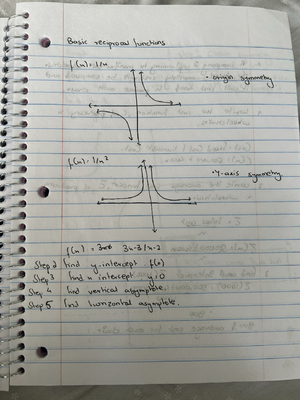 Basic reciprocal functions
f(x) = 1/x
• origin symmetry
f(x) = 1/x²
• Y-axis symmetry
f(x) = 3x-3/x-2
Step 2 find y-intercept f(o)
Step 3 find x intercept y=0
Step 4 find vertical asymptote.
Step 5 find horizontal asymptote.